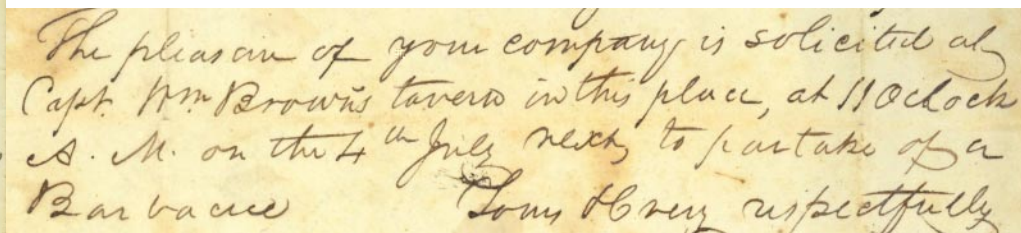 The pleasure of your company is solicited at
Capt. Wm Browns tavern in this place, at 11 Oclock
A. M. on the 4th July next, to partake of a
Barbacue Yours &c very respectfully